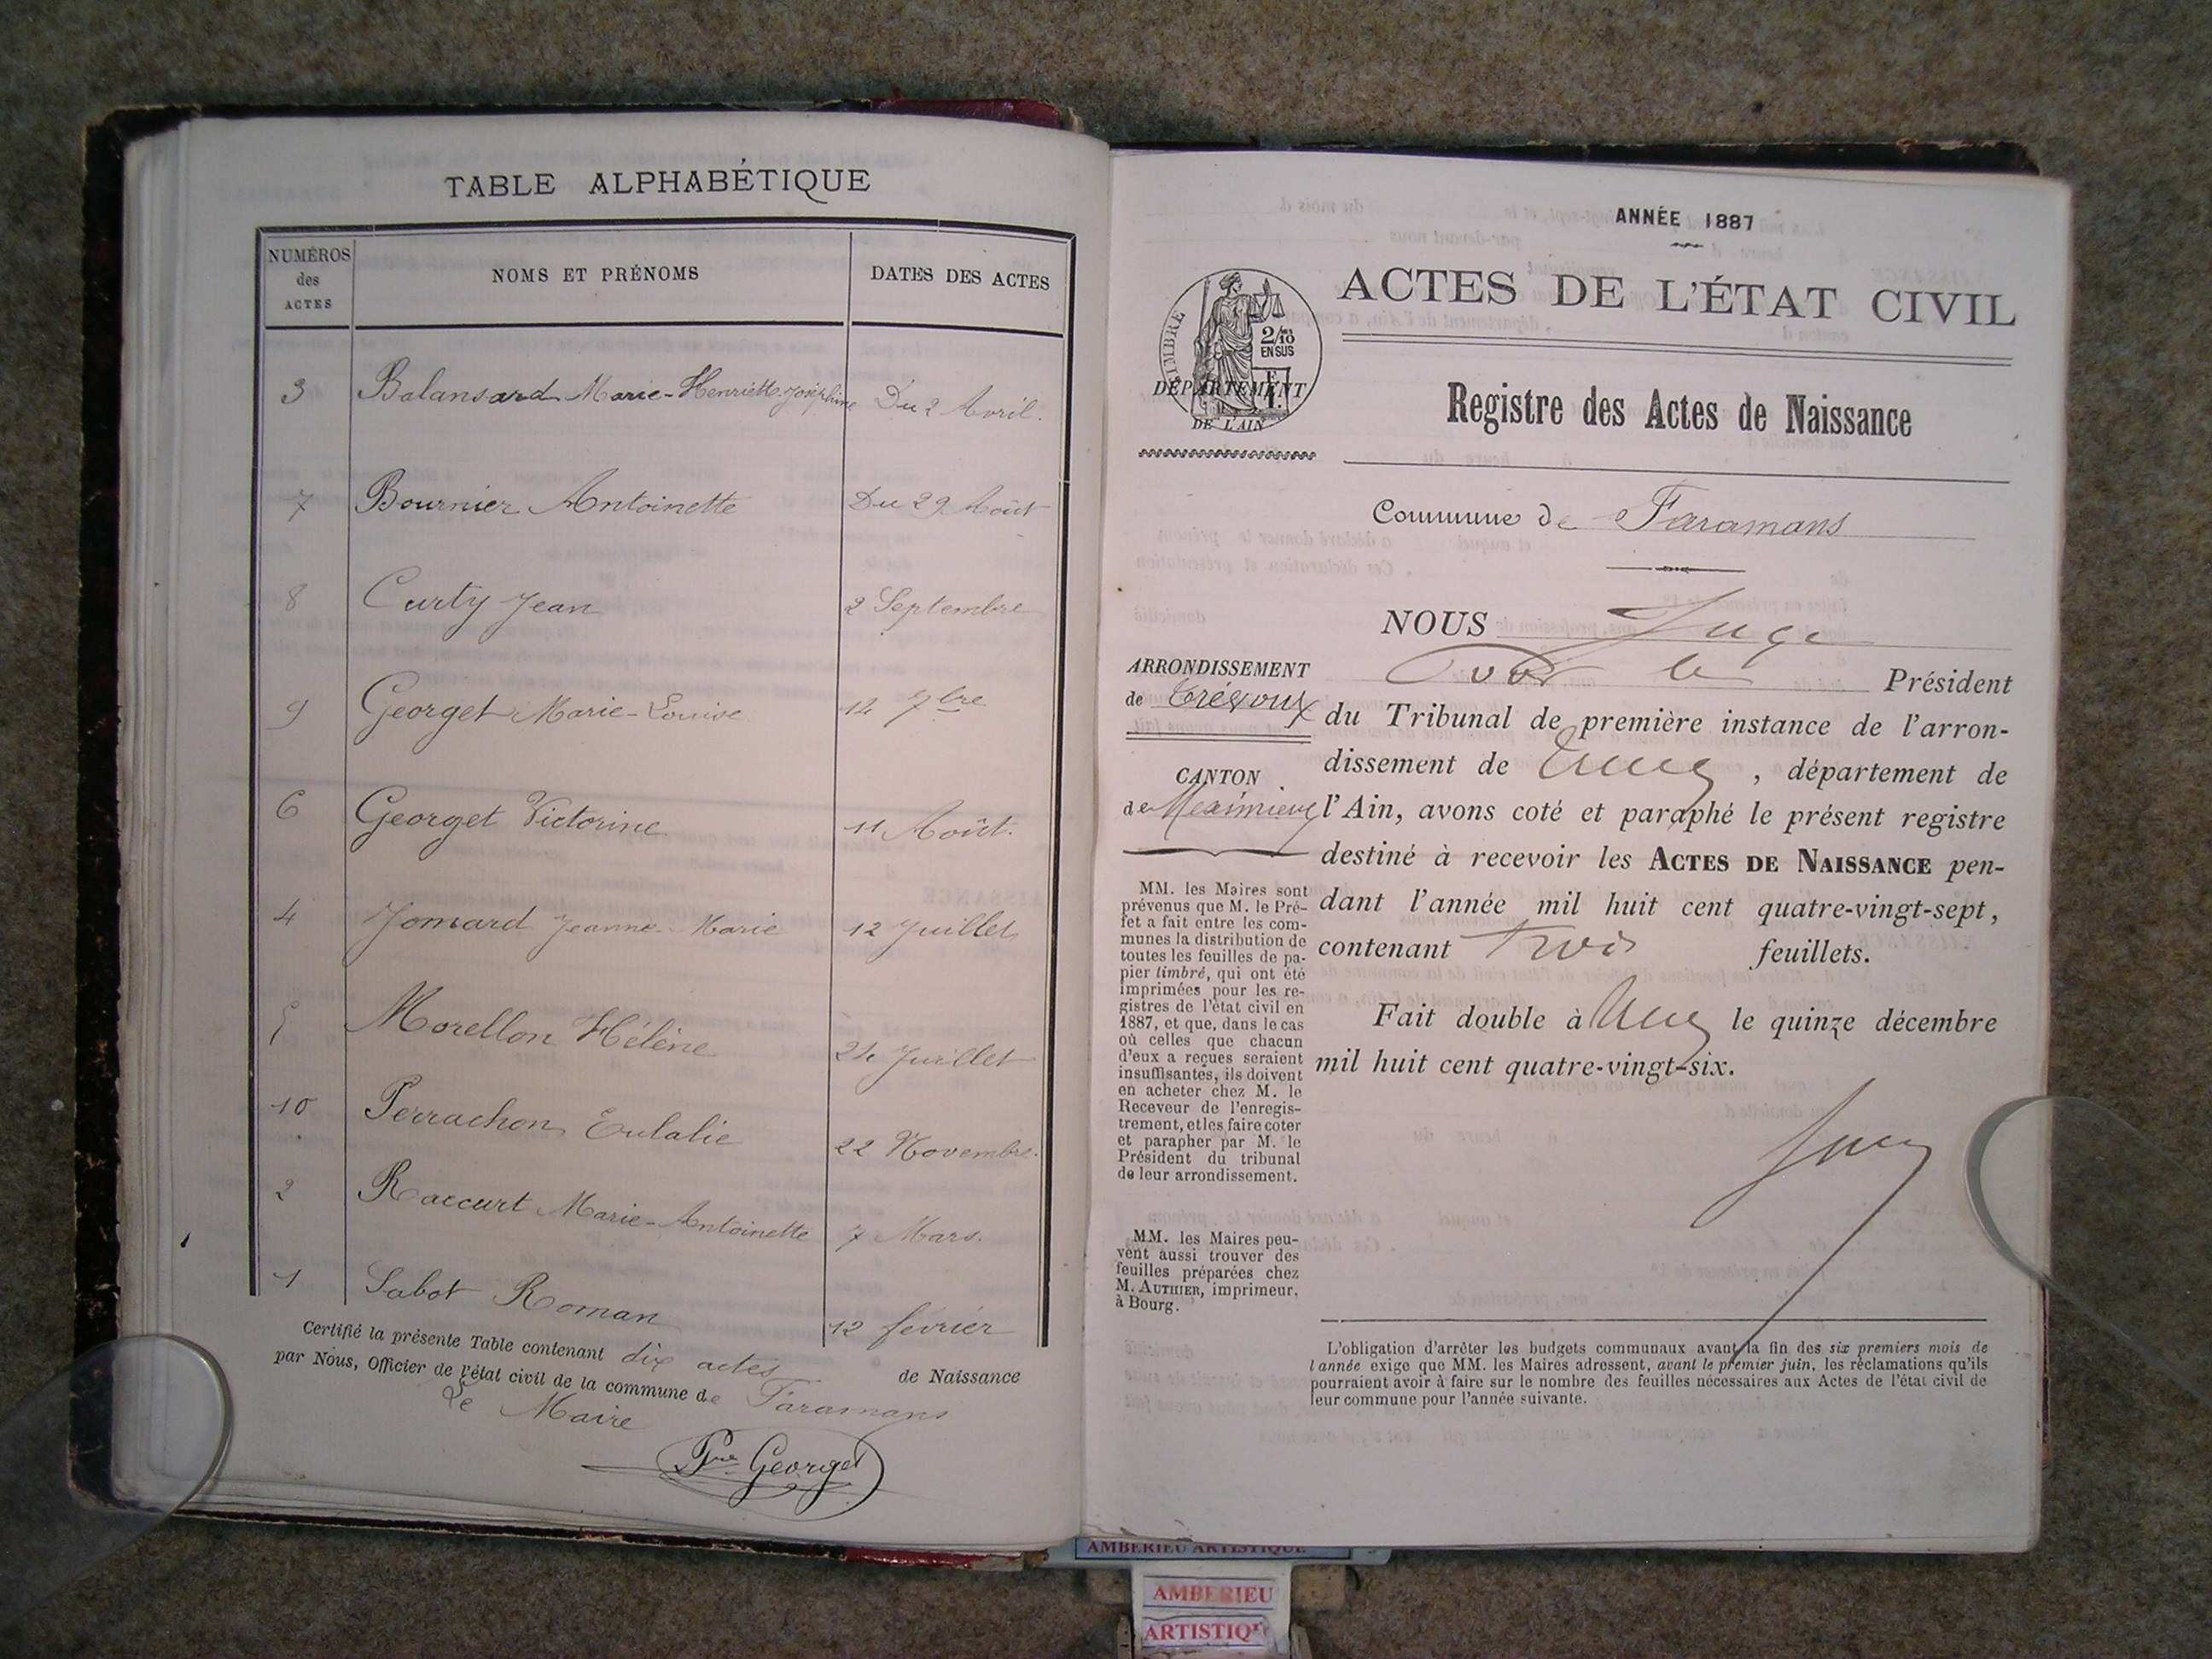 TABLE ALPHABÉTIQUE
NUMÉROS des ACTES
NOMS ET PRÉNOMS
DATES DES ACTES
3 Balansard Marie-Henriette Joséphine Du 2 Avril.
7 Bournier Antoinette Du 29 Août
8 Curty Jean 2 Septembre
9 Georget Marie-Louise 14 7bre
6 Georget Victorine 11 Août.
4 Jomard Jeanne-Marie 12 Juillet
5 Morellon Hélène 24 Juillet
10 Perrachon Eulalie 22 Novembre.
2 Raccurt Marie-Antoinette 7 Mars.
1 Sabot Roman 12 février
Certifié la présente Table contenant dix actes de Naissance
par Nous, Officier de l'état civil de la commune de Faramans
Le Maire
Georget
ANNÉE 1887
ACTES DE L'ÉTAT CIVIL
TIMBRE
2/10
EN SUS
DÉPARTEMENT
DE L'AIN
Registre des Actes de Naissance
Commune de Faramans
NOUS Juge
Président
ARRONDISSEMENT
de Trévoux
du Tribunal de première instance de l'arron-
dissement de , département de
CANTON
de Meximieux
l'Ain, avons coté et paraphé le présent registre
destiné à recevoir les ACTES DE NAISSANCE pen-
dant l'année mil huit cent quatre-vingt-sept,
contenant trois feuillets.
Fait double à le quinze décembre
mil huit cent quatre-vingt-six.
MM. les Maires sont
prévenus que M. le Pré-
fet a fait entre les com-
munes la distribution de
toutes les feuilles de pa-
pier timbré, qui ont été
imprimées pour les re-
gistres de l'état civil en
1887, et que, dans le cas
où celles que chacun
d'eux a reçues seraient
insuffisantes, ils doivent
en acheter chez M. le
Receveur de l'enregis-
trement, et les faire coter
et parapher par M. le
Président du tribunal
de leur arrondissement.
MM. les Maires peu-
vent aussi trouver des
feuilles préparées chez
M. AUTHIER, imprimeur,
à Bourg.
L'obligation d'arrêter les budgets communaux avant la fin des six premiers mois de
l'année exige que MM. les Maires adressent, avant le premier juin, les réclamations qu'ils
pourraient avoir à faire sur le nombre des feuilles nécessaires aux Actes de l'état civil de
leur commune pour l'année suivante.
AMBERIEU ARTISTIQUE
AMBERIEU
ARTISTIQ